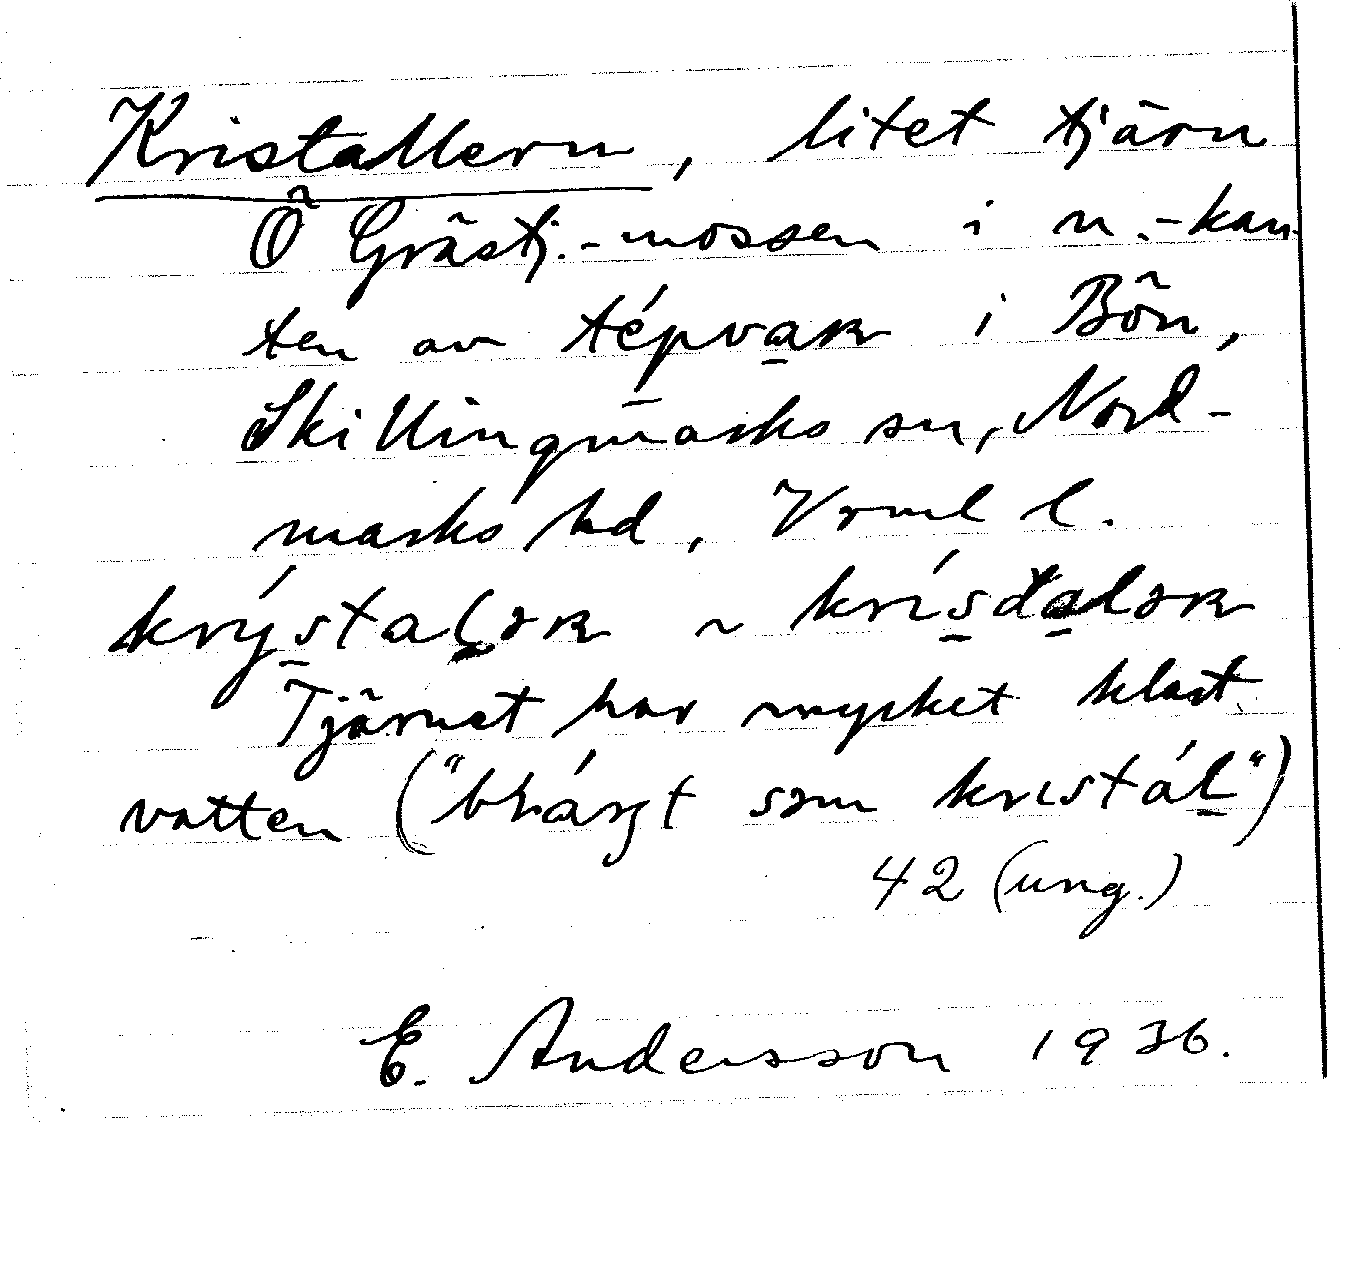 Kristallern, litet tjärn
Ö Grästj.-mossen i n.-kan-
ten av tépvaʀ i Bön,
Skillingmarks sn, Nord-
marks hd, Vrml l.
krýstaɭəʀ ~ krísdaləʀ
Tjärnet har mycket klart
vatten ("bḱárt səm krıstál")
42 (ung.)
E. Andersson 1936.